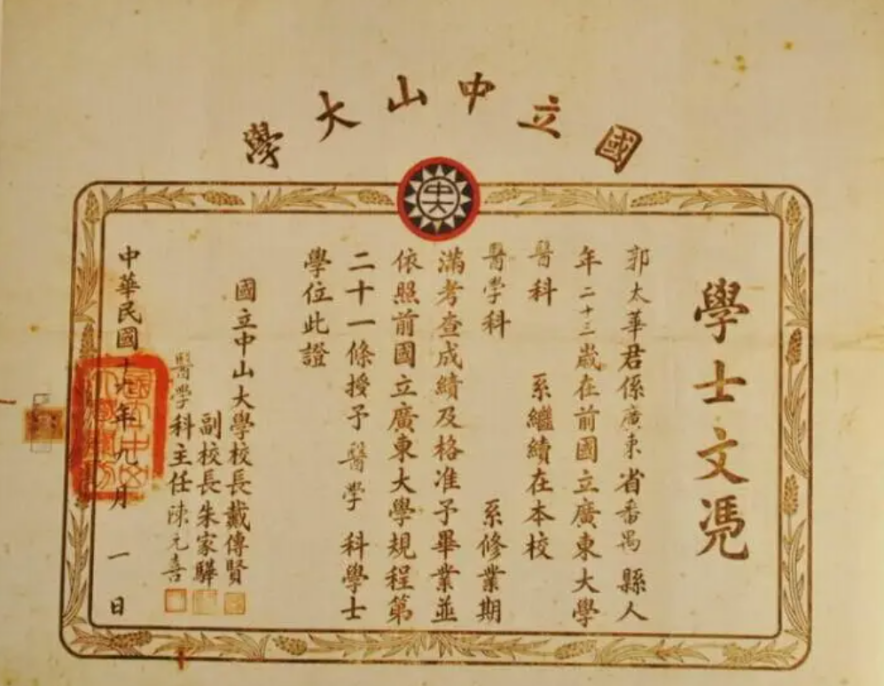 國立中山大學
中大
學士文凴
郭太華君係廣東省番禺縣人
年二十三歲在前國立廣東大學
醫科 系繼續在本校
醫學科 系修業期
滿考查成績及格准予畢業並
依照前國立廣東大學規程第
二十一條授予醫學科學士
學位此證
國立中山大學校長戴傳賢
副校長朱家驊
醫學科主任陳元喜
中華民國十九年九月一日